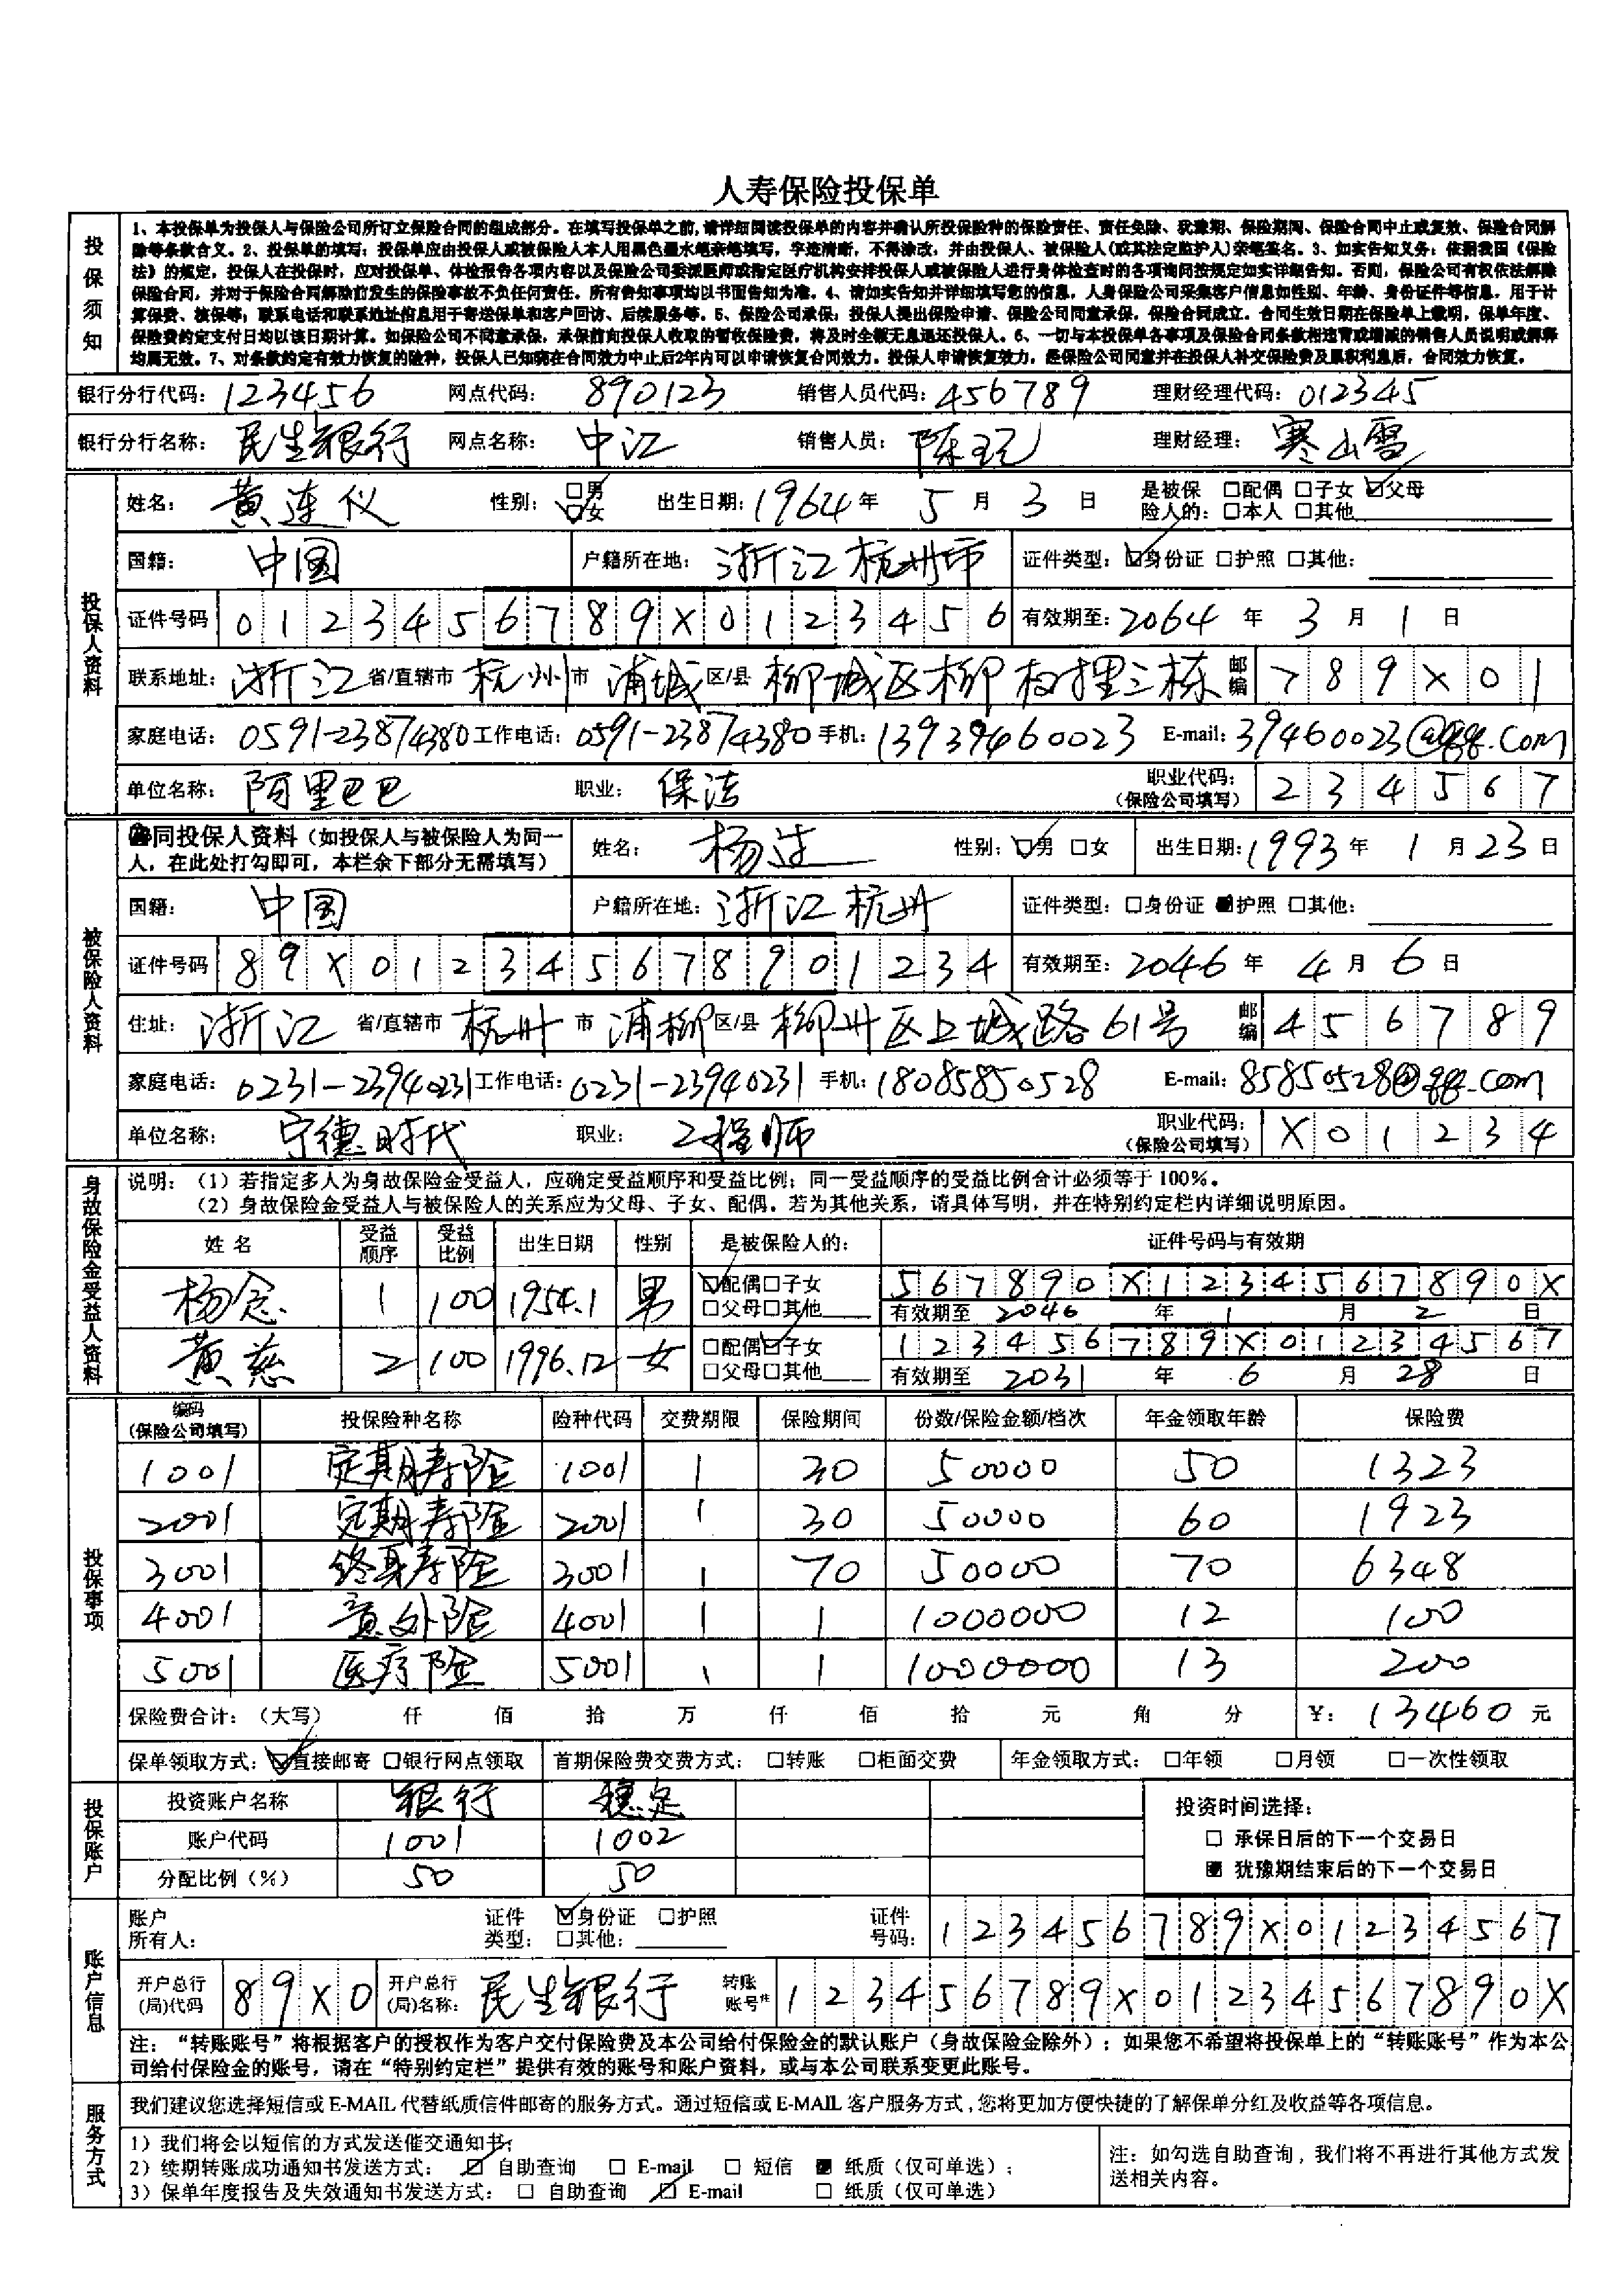 人寿保险投保单
投保须知
1、本投保单为投保人与保险公司所订立保险合同的组成部分。在填写投保单之前,请详细阅读投保单的内容并确认所投保险种的保险责任、责任免除、犹豫期、保险期间、保险合同中止或复效、保险合同解
除等条款含义。2、投保单的填写：投保单应由投保人或被保险人本人用黑色墨水笔亲笔填写，字迹清晰，不得涂改；并由投保人、被保险人(或其法定监护人)亲笔签名。3、如实告知义务：依据我国《保险
法》的规定，投保人在投保时，应对投保单、体检报告各项内容以及保险公司委派医师或指定医疗机构安排投保人或被保险人进行身体检查时的各项询问按规定如实详细告知。否则，保险公司有权依法解除
保险合同，并对于保险合同解除前发生的保险事故不负任何责任。所有告知事项均以书面告知为准。4、请如实告知并详细填写您的信息，人身保险公司采集客户信息如性别、年龄、身份证件等信息，用于计
算保费、核保等；联系电话和联系地址信息用于寄送保单和客户回访、后续服务等。5、保险公司承保：投保人提出保险申请、保险公司同意承保，保险合同成立。合同生效日期在保险单上载明，保单年度、
保险费约定支付日均以该日期计算。如保险公司不同意承保，承保前向投保人收取的暂收保险费，将及时全额无息退还投保人。6、一切与本投保单各事项及保险合同条款相违背或增减的销售人员说明或解释
均属无效。7、对条款约定有效力恢复的险种，投保人已知晓在合同效力中止后2年内可以申请恢复合同效力。投保人申请恢复效力，经保险公司同意并在投保人补交保险费及累积利息后，合同效力恢复。
银行分行代码：123456 网点代码： 890123 销售人员代码：456789 理财经理代码：012345
银行分行名称： 民生银行 网点名称： 中江 销售人员： 陈玘 理财经理： 寒山雪
投保人资料
姓名： 黄连仪 性别： □男 ☑女 出生日期：1964年 5月 3日 是被保险人的： □配偶 □子女 ☑父母 □本人 □其他
国籍： 中国 户籍所在地： 浙江杭州市 证件类型：☑身份证 □护照 □其他：
证件号码 0123456789X0123456 有效期至：2064年 3月 1日
联系地址： 浙江 省/直辖市 杭州 市 浦城 区/县 柳城区柳树里三栋 邮编 789X01
家庭电话： 0591-23874380 工作电话：0591-23874380 手机：13939460023 E-mail：39460023@qq.com
单位名称： 阿里巴巴 职业： 保洁 职业代码：（保险公司填写） 234567
被保险人资料
同投保人资料（如投保人与被保险人为同一
人，在此处打勾即可，本栏余下部分无需填写） 姓名： 杨过 性别：☑男 □女 出生日期：1993年 1月23日
国籍： 中国 户籍所在地：浙江杭州 证件类型：□身份证 ■护照 □其他：
证件号码 89X012345678901234 有效期至：2046年 4月 6日
住址： 浙江 省/直辖市 杭州 市 浦柳 区/县 柳州区上城路61号 邮编 456789
家庭电话： 0231-23940231 工作电话：0231-23940231 手机：18085850528 E-mail：85850528@qq.com
单位名称： 宁德时代 职业： 工程师 职业代码：（保险公司填写） X01234
身故保险金受益人资料
说明：（1）若指定多人为身故保险金受益人，应确定受益顺序和受益比例；同一受益顺序的受益比例合计必须等于100%。
（2）身故保险金受益人与被保险人的关系应为父母、子女、配偶。若为其他关系，请具体写明，并在特别约定栏内详细说明原因。
姓 名 受益顺序 受益比例 出生日期 性别 是被保险人的： 证件号码与有效期
杨念 1 100 1954.1 男 ☑配偶□子女 □父母□其他 567890X1234567890X
有效期至 2046 年 1 月 2 日
黄慈 2 100 1996.12 女 □配偶☑子女 □父母□其他 123456789X01234567
有效期至 2031 年 6 月 28 日
投保事项
编码（保险公司填写） 投保险种名称 险种代码 交费期限 保险期间 份数/保险金额/档次 年金领取年龄 保险费
1001 定期寿险 1001 1 30 50000 50 1323
2001 定期寿险 2001 1 30 50000 60 1923
3001 终身寿险 3001 1 70 50000 70 6348
4001 意外险 4001 1 1 1000000 12 100
5001 医疗险 5001 1 1 1000000 13 200
保险费合计：（大写） 仟 佰 拾 万 仟 佰 拾 元 角 分 ¥： 13460 元
保单领取方式：☑直接邮寄 □银行网点领取 首期保险费交费方式： □转账 □柜面交费 年金领取方式： □年领 □月领 □一次性领取
投保账户
投资账户名称 银行 稳定
账户代码 1001 1002
分配比例（%） 50 50
投资时间选择：
□ 承保日后的下一个交易日
■ 犹豫期结束后的下一个交易日
账户信息
账户所有人： 证件类型： ☑身份证 □护照 □其他： 证件号码： 123456789X01234567
开户总行(局)代码 89X0 开户总行(局)名称： 民生银行 转账账号注 123456789X01234567890X
注：“转账账号”将根据客户的授权作为客户交付保险费及本公司给付保险金的默认账户（身故保险金除外）；如果您不希望将投保单上的“转账账号”作为本公
司给付保险金的账号，请在“特别约定栏”提供有效的账号和账户资料，或与本公司联系变更此账号。
服务方式
我们建议您选择短信或 E-MAIL 代替纸质信件邮寄的服务方式。通过短信或 E-MAIL 客户服务方式，您将更加方便快捷的了解保单分红及收益等各项信息。
1）我们将会以短信的方式发送催交通知书；
2）续期转账成功通知书发送方式： ☑ 自助查询 □ E-mail □ 短信 ■ 纸质（仅可单选）；
3）保单年度报告及失效通知书发送方式： □ 自助查询 ☑ E-mail □ 纸质（仅可单选）
注：如勾选自助查询，我们将不再进行其他方式发
送相关内容。